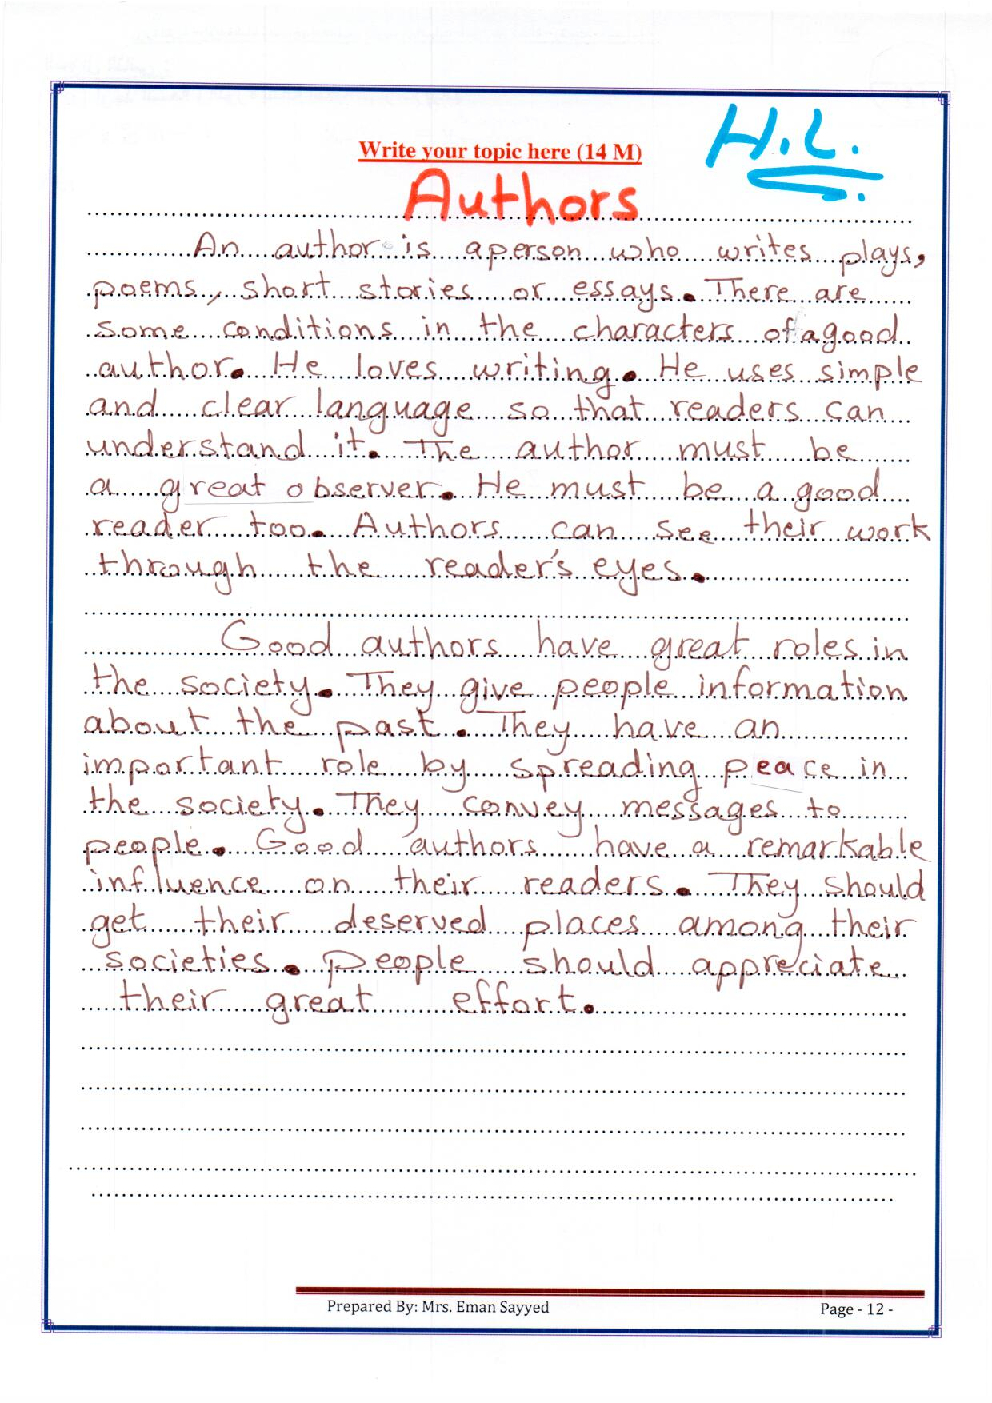 H.L.
Write your topic here (14 M)
Authors
An author is a person who writes plays,
poems, short stories or essays. There are
some conditions in the characters of a good
author. He loves writing. He uses simple
and clear language so that readers can
understand it. The author must be
a great observer. He must be a good
reader too. Authors can see their work
through the reader's eyes.
Good authors have great roles in
the society. They give people information
about the past. They have an
important role by spreading peace in
the society. They convey messages to
people. Good authors have a remarkable
influence on their readers. They should
get their deserved places among their
societies. People should appreciate
their great effort.
Prepared By: Mrs. Eman Sayyed
Page - 12 -